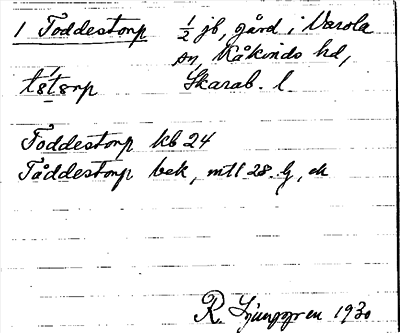 1 Toddestorp ½ jb, gård i Varola
sn, Kåkinds hd,
Skarab. l.
Toddestorp kb 24
Tåddestorp bek, mtl 28.
R. Ljunggren 1930